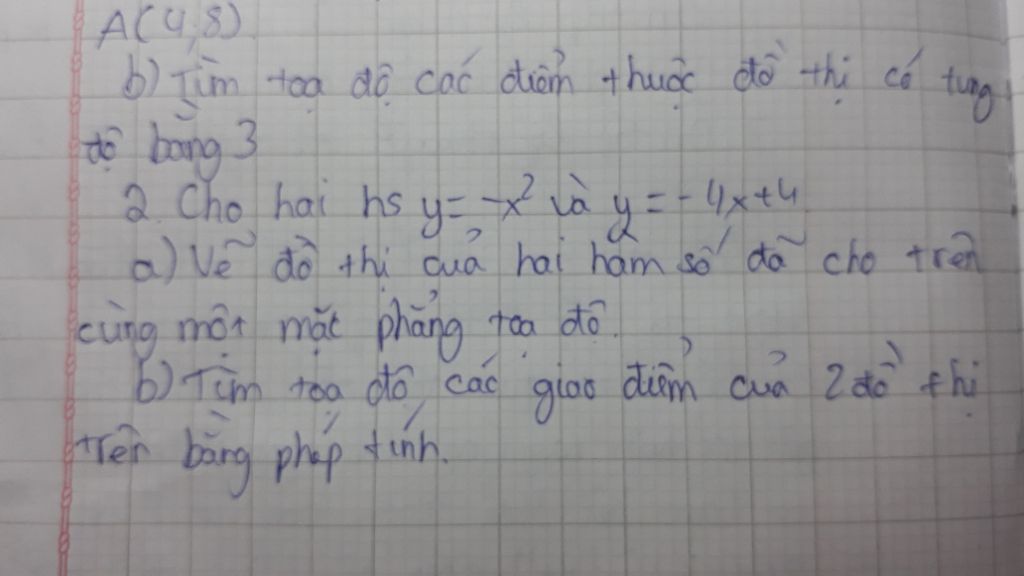 A(4,8)
b) Tìm toạ độ các điểm thuộc đồ thị có tung
độ bằng 3
2. Cho hai hs y = -x² và y = -4x+4
a) Vẽ đồ thị của hai hàm số đã cho trên
cùng một mặt phẳng tọa độ.
b) Tìm tọa độ các giao điểm của 2 đồ thị
trên bằng phép tính.